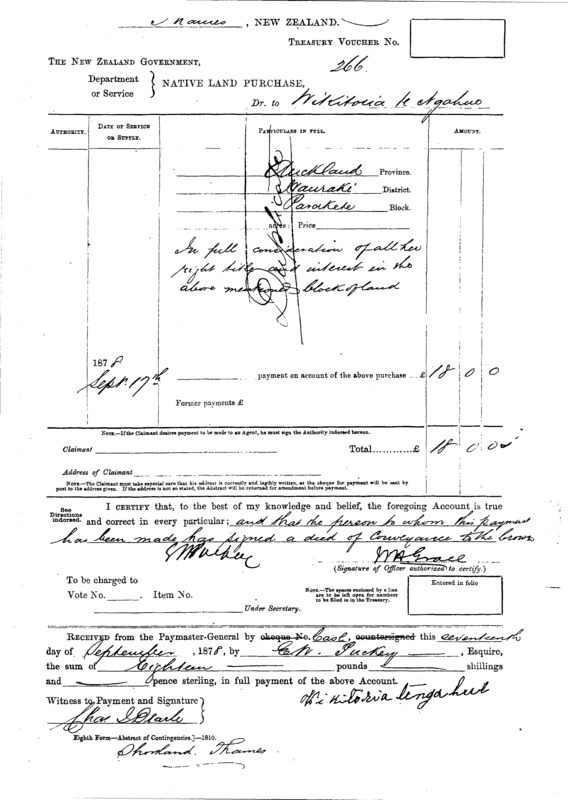 Thames, NEW ZEALAND.
TREASURY VOUCHER No.
266.
THE NEW ZEALAND GOVERNMENT,
Department or Service } NATIVE LAND PURCHASE,
Dr. to Wikitoria te Ngahue
AUTHORITY. DATE OF SERVICE OR SUPPLY. PARTICULARS IN FULL. AMOUNT.
Duplicate
Auckland Province.
Hauraki District.
Parakete Block.
acres: Price
In full consideration of all her
right title and interest in the
above mentioned block of land
1878
Sept. 17th payment on account of the above purchase ... £ 18 0 0
Former payments £
NOTE.—If the Claimant desires payment to be made to an Agent, he must sign the Authority indorsed hereon.
Claimant Total............£ 18 0.0
Address of Claimant
NOTE.—The Claimant must take especial care that his address is correctly and legibly written, as the cheque for payment will be sent by
post to the address given. If the address is not so stated, the Abstract will be returned for amendment before payment.
See Directions indorsed.
I CERTIFY that, to the best of my knowledge and belief, the foregoing Account is true
and correct in every particular; and that the person to whom this payment
has been made has signed a died of Conveyance to the Crown
(Signature of Officer authorized to certify.)
To be charged to
Vote No. . Item No.
NOTE.—The spaces enclosed by a line are to be left open for numbers to be filled in in the Treasury.
Entered in folio
Under Secretary.
RECEIVED from the Paymaster-General by cheque No. Cash, countersigned this seventeenth
day of September, 1878, by E.W. Puckey, Esquire,
the sum of Eighteen pounds shillings
and 0pence sterling, in full payment of the above Account.
Witness to Payment and Signature }
Wikitoria tengahue
Eighth Form—Abstract of Contingencies.]—1810.
Shortland Thames